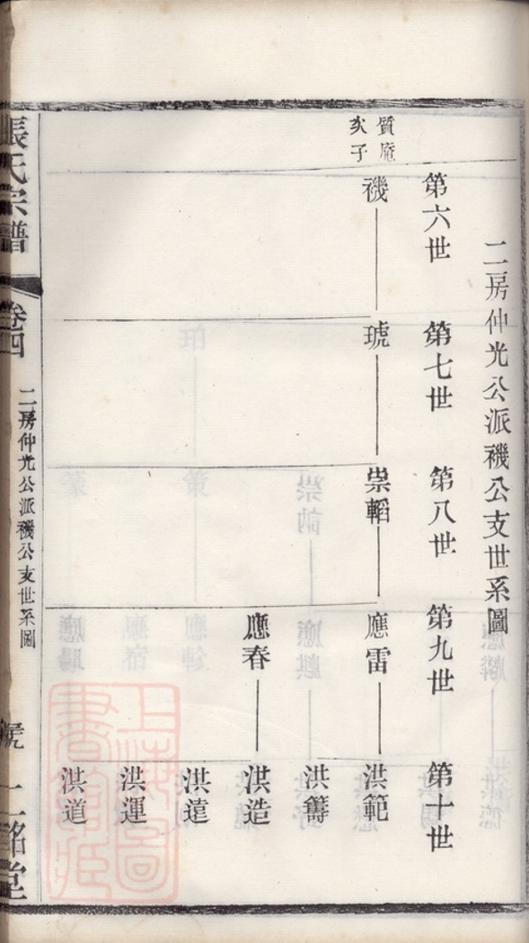 二房仲光公派禨公支世系圖
第六世
第七世
第八世
第九世
第十世
質庵
次子
禨
琥
崇韜
應雷
洪範
洪籌
應春
洪造
洪運
洪道
張氏宗譜
卷四
二房仲光公派禨公支世系圖
號
二銘堂